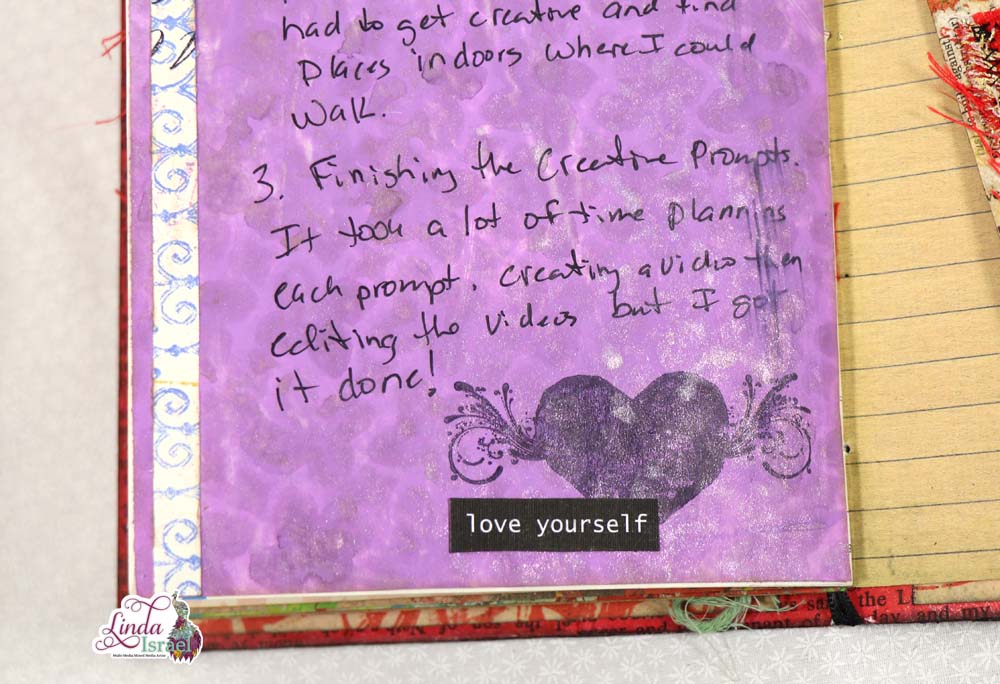 had to get creative and find
places indoors where I could
walk.
3. Finishing the Creative Prompts.
It took a lot of time planning
each prompt. creating a video then
editing the videos but I got
it done!
love yourself
Linda
Israel
Multi-Media Mixed Media Artist
against
the
day and my